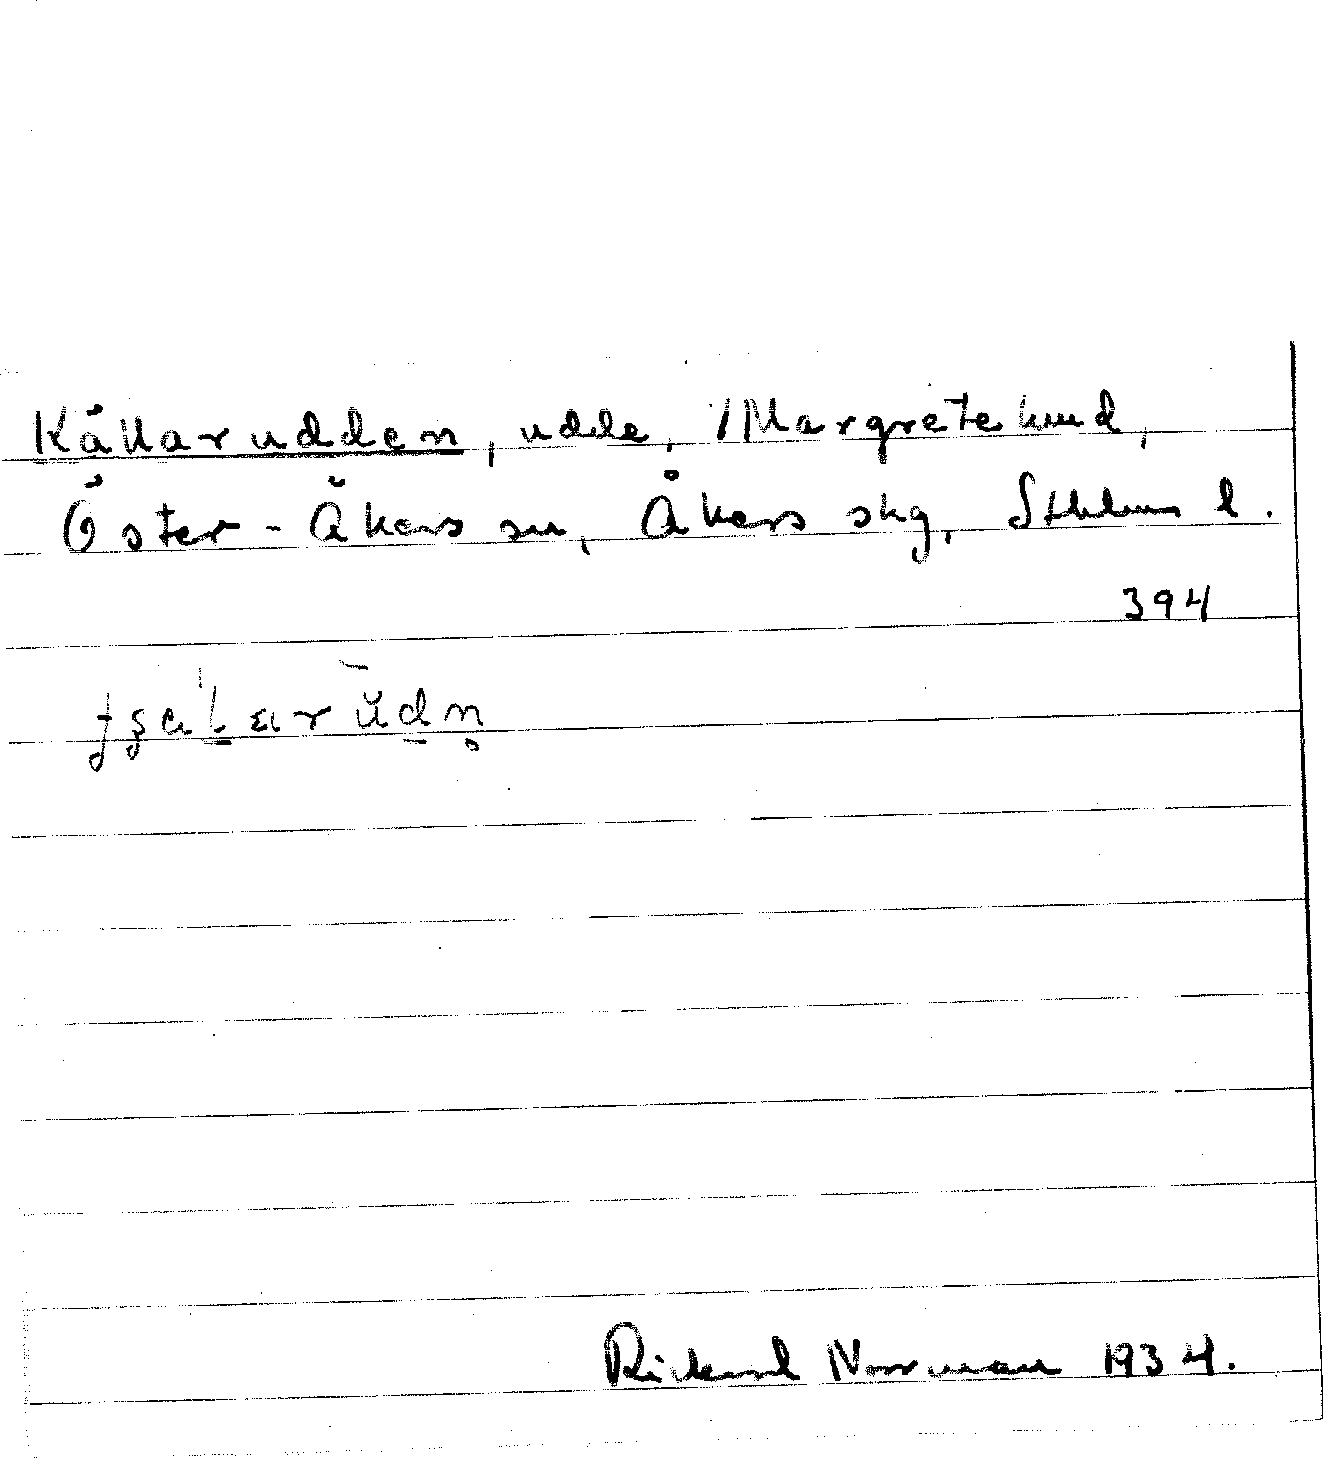 Källarudden, udde, Margretelund,
Öster-Åkers sn, Åkers skg, Sthlms l.
394
Rickard Norman 1934.